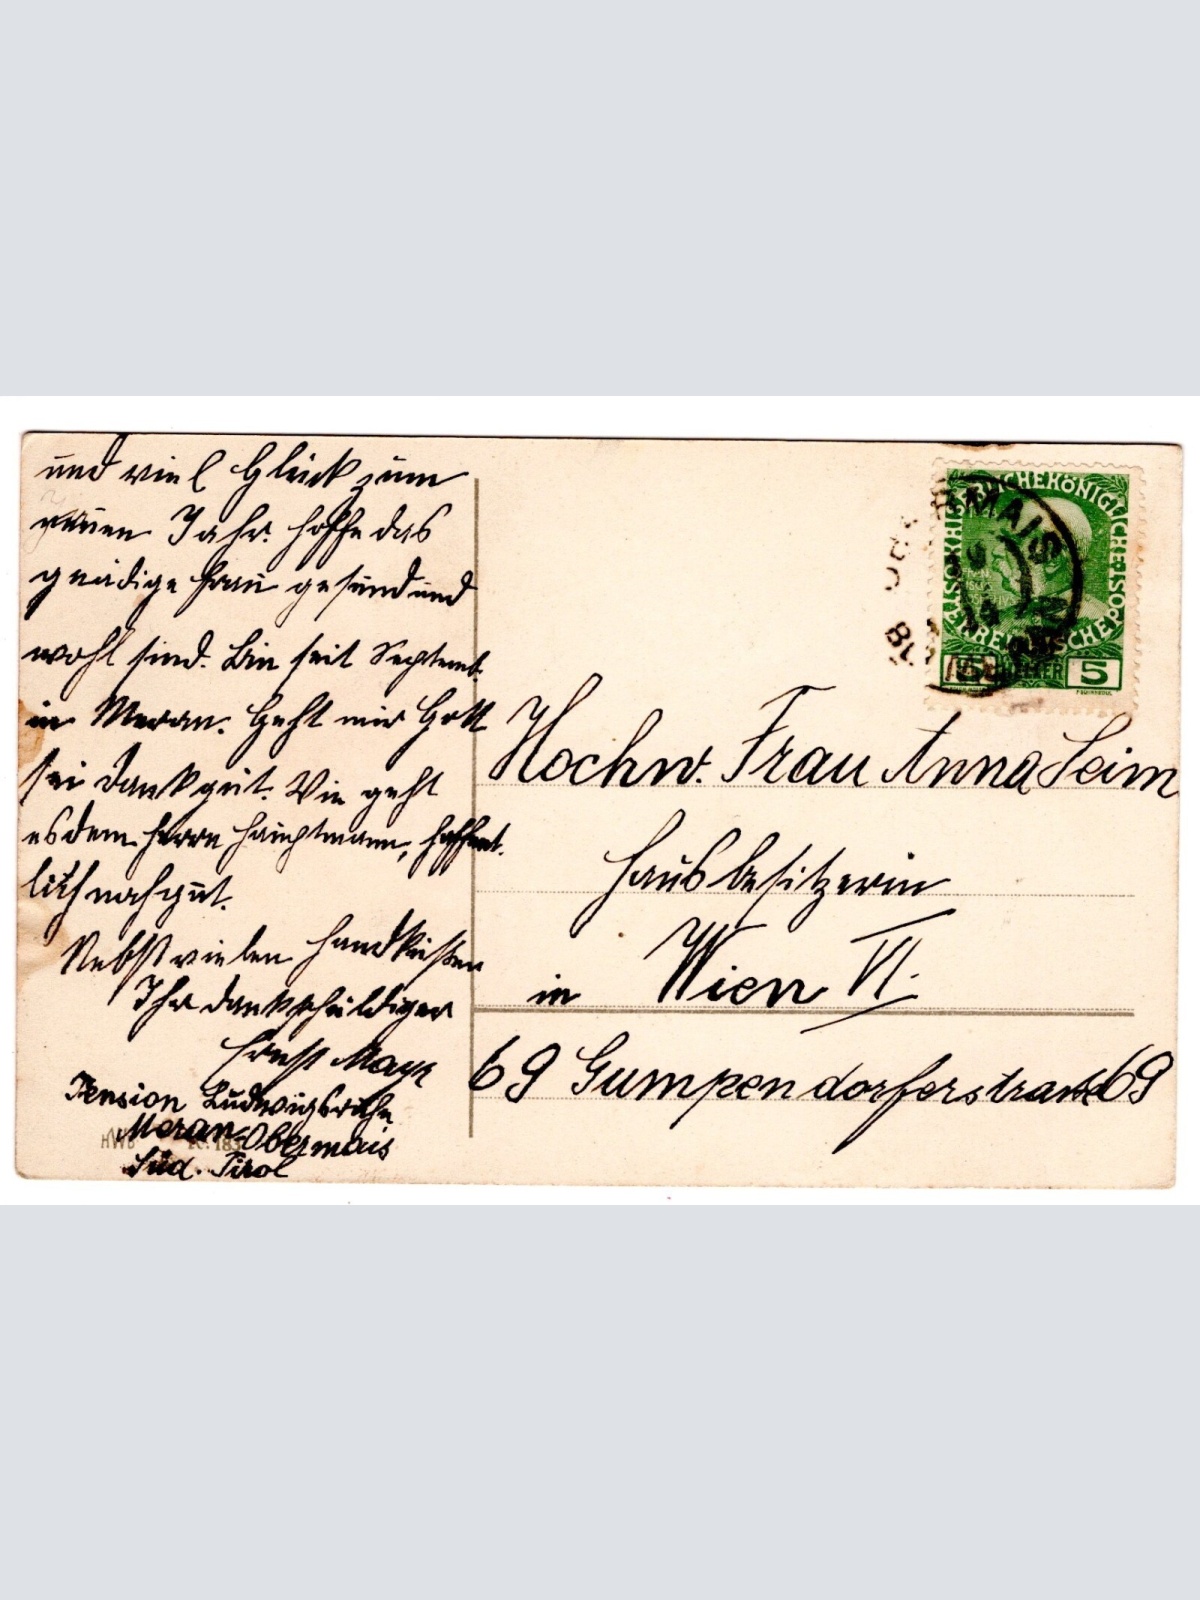 und viel Glück zum
neuen Jahr. Hoffe das
gnädige Frau gesund und
wohl sind. Bin seit Septemb.
in Meran. Geht mir Gott
sei Dank gut. Wie geht
es dem Herrn Hauptmann, hoffent.
lich noch gut.
Nebst vielen Handküssen
Ihr dankschuldiger
Ernst Mayr
Pension Ludwigsruhe
Meran-Obermais
Süd. Tirol
KAISERLICHE KÖNIGLICHE POST
ÖSTERREICHISCHE
5 HELLER 5
OBERMAIS
Hochw. Frau Anna Leim
Hausbesitzerin
in Wien VI.
69 Gumpendorferstrasse 69